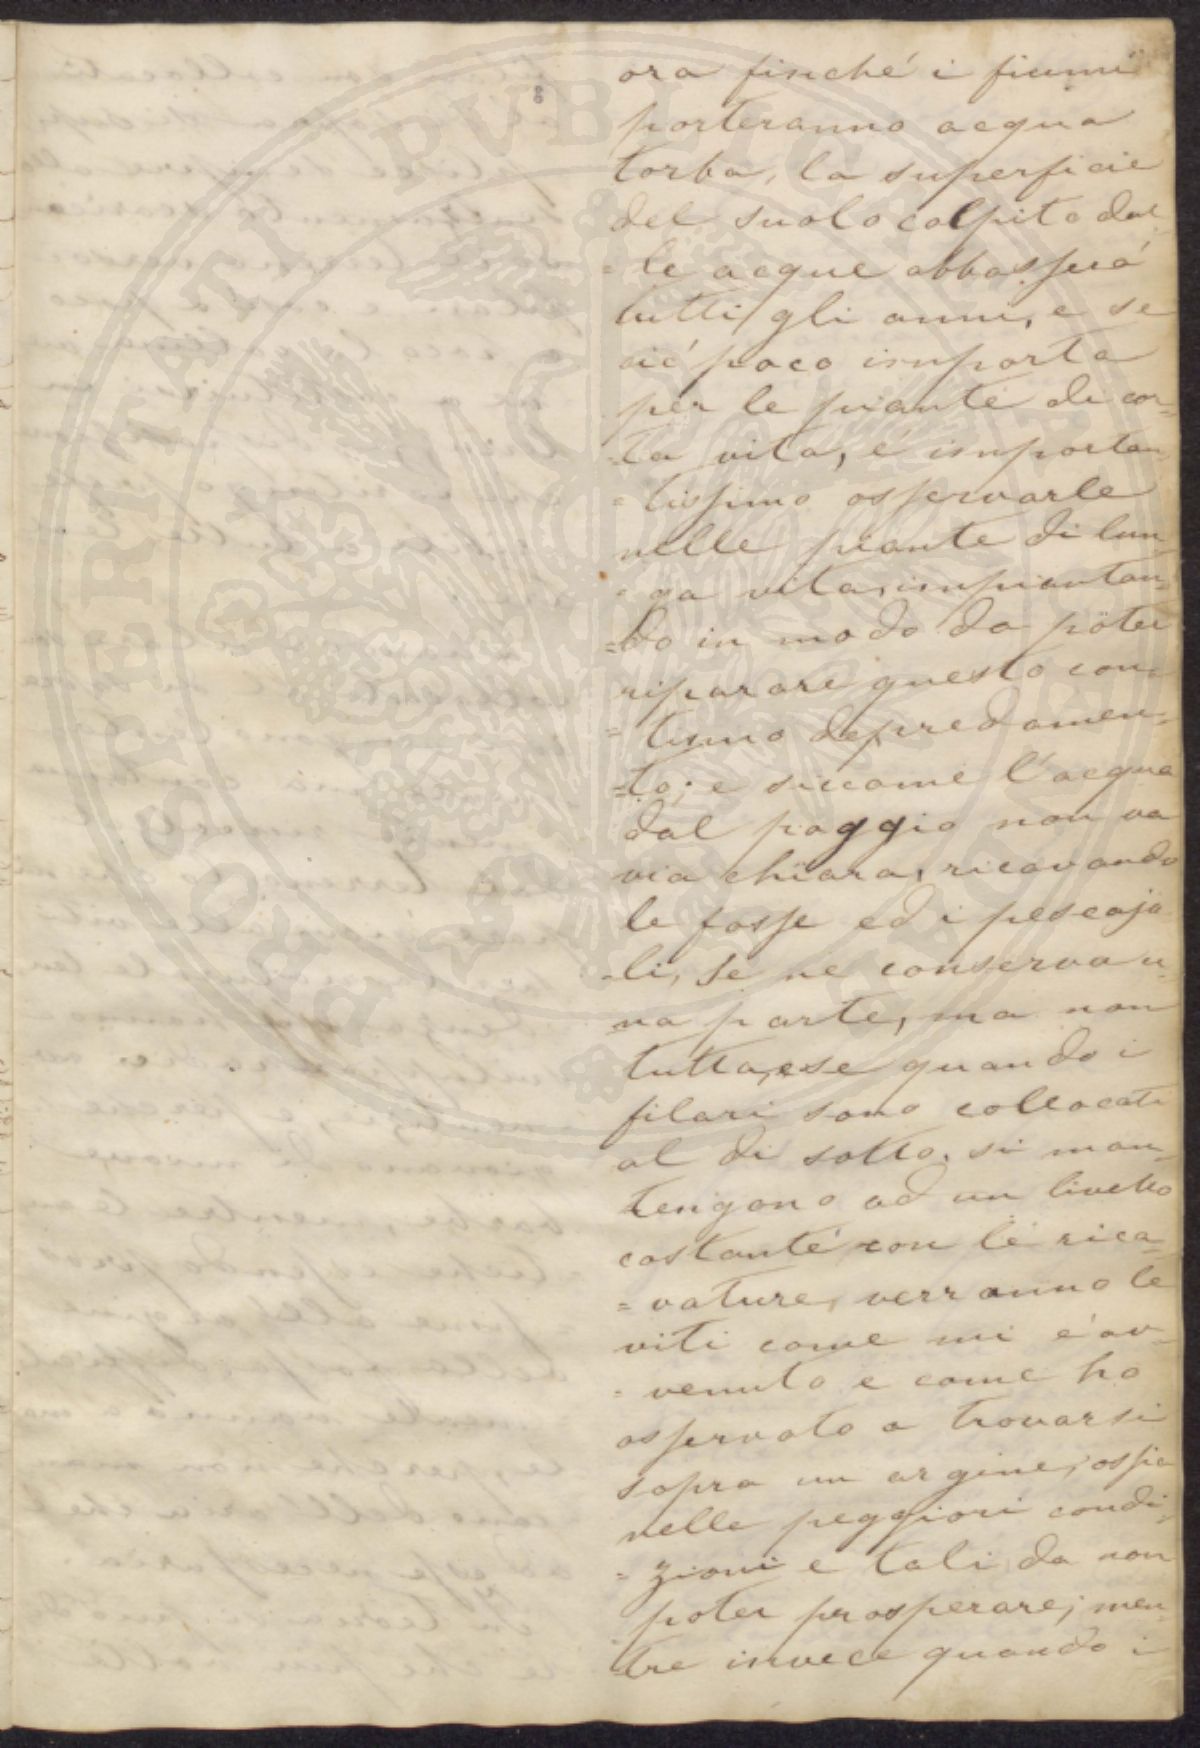 8
ora finché i fiumi
porteranno acqua
torba, la superficie
del suolo colpito dal-
=le acque abbasserá
tutti gli anni, e se
ció poco importa
per le piante di cor=
=ta vita, é importan
=tissimo osservarle
nelle piante di lun=
=ga vita, impiantan=
=do in modo da poter
riparare questo con=
=tinuo depredamen=
=to; e siccome l'acqua
dal poggio non va
via chiara, ricavando
le fosse ed i pescaja
=li, se ne conserva u=
na parte, ma non
tutta, e se quando i
filari sono collocati
al di sotto, si man=
tengono ad un livello
costante con le rica=
=vature, verranno le
viti come mi é av=
=venuto e come ho
osservato a trovarsi
sopra un argine, ossia
nelle peggiori condi
=zioni e tali da non
poter prosperare; men=
=tre invece quando i
PROSPERITATI PUBLICAE